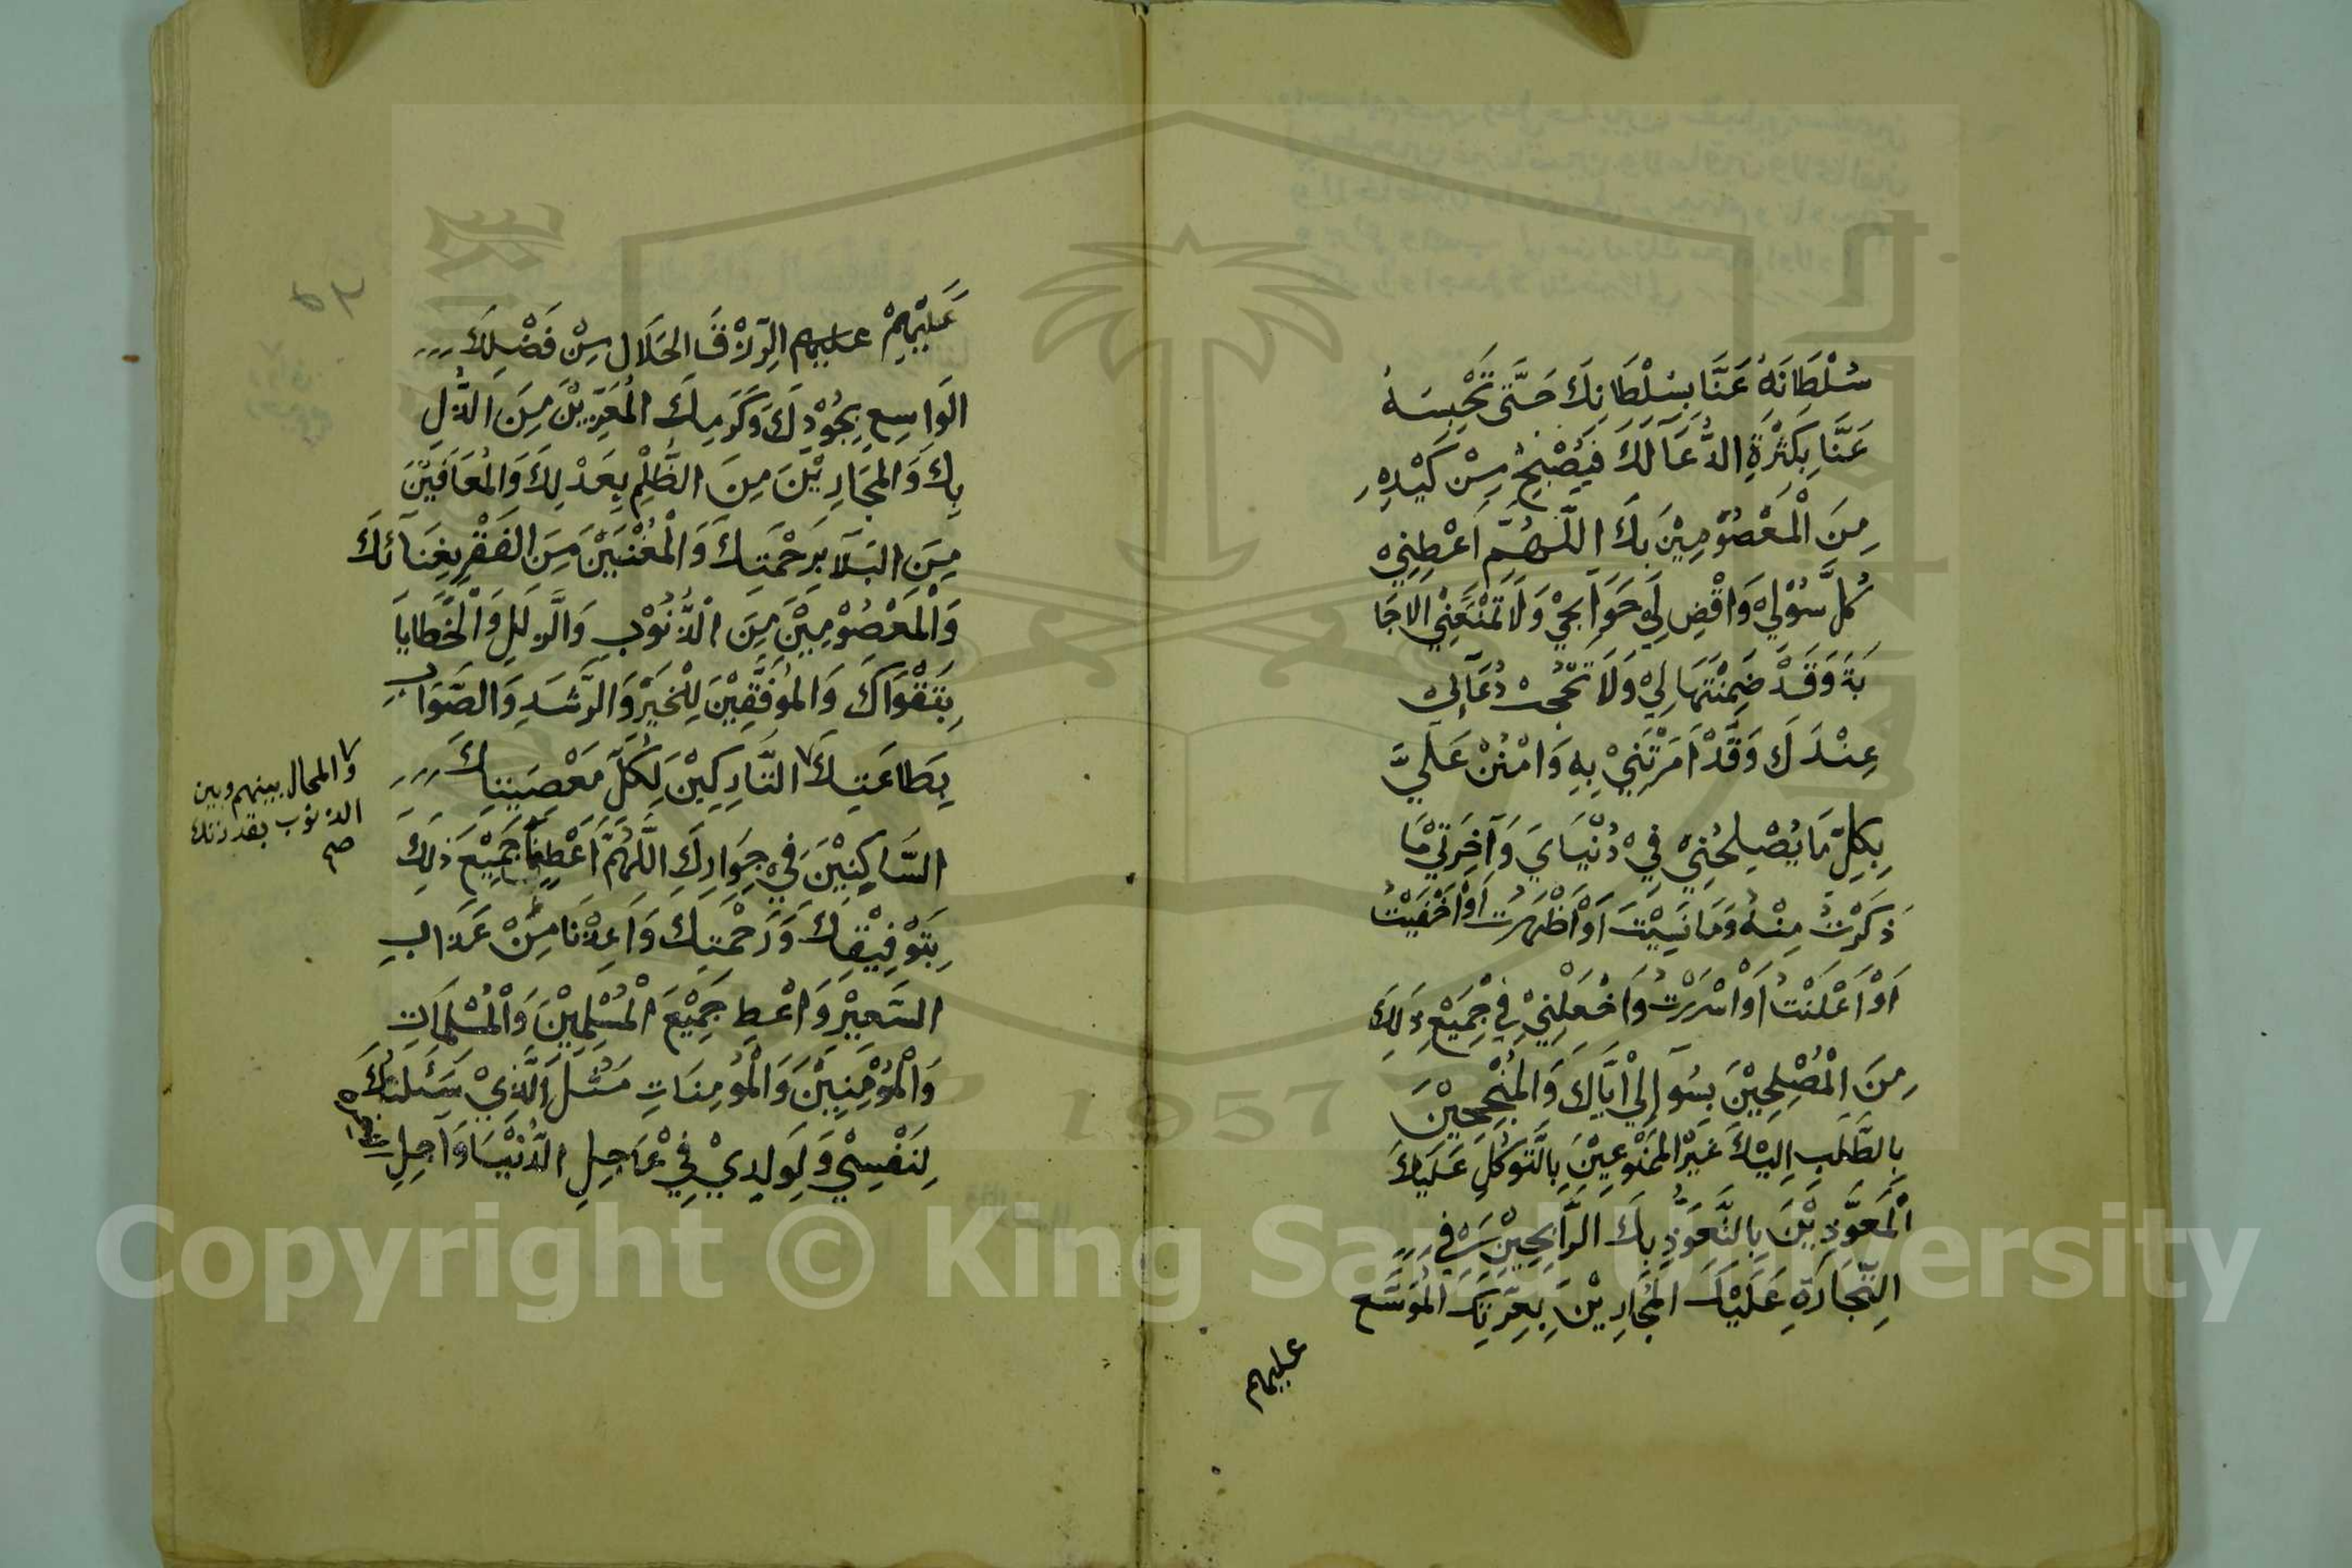 سُلْطَانَهُ عَنَّا بِسُلْطَانِكَ حَتَّى تَحْبِسَهُ
عَنَّا بِكَثْرَةِ الدُّعَآ لَكَ فَيُصْبِحُ مِنْ كَيْدِهِ
مِنَ الْمَعْصُوْمِيْنَ بِكَ اللّٰهُمَّ اَعْطِنِيْ
كُلَّ سُوْلِيْ وَاقْضِ لِيْ حَوَآئِجِيْ وَلَا تَمْنَعْنِيْ الْاِجَا
بَةَ وَقَدْ ضَمِنْتَهَا لِيْ وَلَا تَحْجُبْ دُعَآئِيْ
عِنْدَكَ وَقَدْ اَمَرْتَنِيْ بِهِ وَامْنُنْ عَلَيَّ
بِكُلِّ مَا يُصْلِحُنِيْ فِيْ دُنْيَايَ وَآخِرَتِيْ مَا
ذَكَرْتُ مِنْهُ وَمَا نَسِيْتُ اَوْ اَظْهَرْتُ اَوْ اَخْفَيْتُ
اَوْ اَعْلَنْتُ اَوْ اَسْرَرْتُ وَاجْعَلْنِيْ فِيْ جَمِيْعِ ذٰلِكَ
مِنَ الْمُصْلِحِيْنَ بِسُوآلِيْ اِيَّاكَ وَالْمُنْجِحِيْنَ
بِالطَّلَبِ اِلَيْكَ غَيْرَ الْمَمْنُوْعِيْنَ بِالتَّوَكُّلِ عَلَيْكَ
الْمُعَوَّذِيْنَ بِالتَّعَوُّذِ بِكَ الرَّابِحِيْنَ فِي
التِّجَارَةِ عَلَيْكَ الْمُجَارِيْنَ بِعِزَّتِكَ الْمُوَسَّعِ
عليهم
عَلَيْهِمْ عليهم الرِّزْقَ الْحَلَال مِنْ فَضْلِكَ
الْوَاسِعِ بِجُوْدِكَ وَكَرَمِكَ الْمُعَزِّيْنَ مِنَ الذُّلِّ
بِكَ وَالْمُجَارِيْنَ مِنَ الظُّلْمِ بِعَدْلِكَ وَالْمُعَافَيْنَ
مِنَ الْبَلَآ بِرَحْمَتِكَ وَالْمُغْنَيْنَ مِنَ الْفَقْرِ بِغِنَآئِكَ
وَالْمَعْصُوْمِيْنَ مِنَ الذُّنُوْبِ وَالزَّلَلِ وَالْخَطَايَا
بِتَقْوَاكَ وَالْمُوَفَّقِيْنَ لِلْخَيْرِ وَالرَّشَدِ وَالصَّوَابِ
بِطَاعَتِكَ التَّارِكِيْنَ لِكُلِّ مَعْصِيَتِكَ
والمحال بينهم وبين
الذنوب بقدرتك
صح
السَّاكِنِيْنَ فِيْ جِوَارِكَ اللّٰهُمَّ اَعْطِنَا جَمِيْعَ ذٰلِكَ
بِتَوْفِيْقِكَ وَرَحْمَتِكَ وَاَعِذْنَا مِنْ عَذَابِ
السَّعِيْرِ وَاَعْطِ جَمِيْعَ الْمُسْلِمِيْنَ وَالْمُسْلِمَاتِ
وَالْمُؤْمِنِيْنَ وَالْمُؤْمِنَاتِ مِثْلَ الَّذِيْ سَئَلْتُكَ
لِنَفْسِيْ وَلِوَلَدِيْ فِيْ عَاجِلِ الدُّنْيَا وَآجِلِ
1957
Copyright © King Saud University